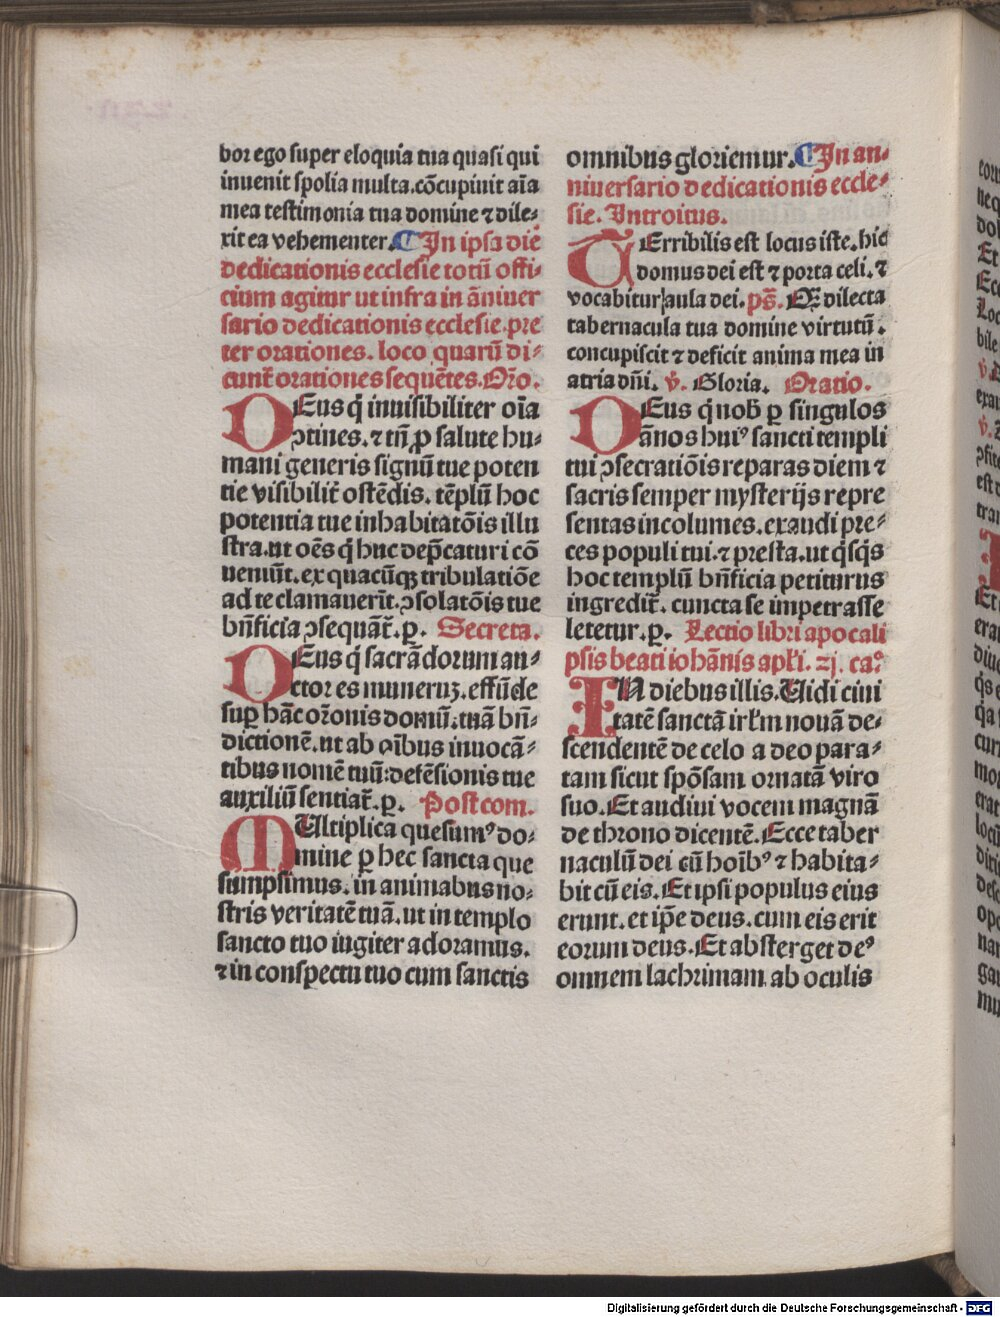 bor ego super eloquia tua quasi qui
inuenit spolia multa.cōcupiuit aīa
mea testimonia tua domine ⁊ dile⸗
xit ea vehementer. ¶ In ipsa die
dedicationis ecclesie totū offi⸗
cium agitur ut infra in āniuer
sario dedicationis ecclesie.pre
ter orationes. loco quarū di⸗
cunt̄ orationes sequētes. Or̄o.
DEus q̇ inuisibiliter oīa
ↄtines. ⁊ tn̄ ꝓ salute hu⸗
mani generis signū tue poten
tie visibilit̄ ostēdis. tēplū hoc
potentia tue inhabitatōis illu
stra.ut oēs q̇ huc dep̄caturi cō
ueniūt. ex quacūqꝫ tribulatiōe
ad te clamauerīt.ↄsolatōis tue
bn̄ficia ↄsequāt̄. ꝑ. Secreta.
DEus q̇ sacrādorum au⸗
ctor es muneruꝫ. effūde
suꝑ hāc or̄onis domū.tuā bn̄⸗
dictionē.ut ab oībus inuocā⸗
tibus nomē tuū:defēsionis tue
auxiliū sentiat̄. ꝑ. Postcom.
MUltiplica quesumꝰ do⸗
mine ꝑ hec sancta que
sumpsimus. in animabus no⸗
stris veritatē tuā. ut in templo
sancto tuo iugiter adoramus.
⁊ in conspectu tuo cum sanctis
omnibus gloriemur. ¶ In an⸗
niuersario dedicationis eccle⸗
sie. Introitus.
TErribilis est locus iste. hic
domus dei est ⁊ porta celi. ⁊
vocabitur aula dei. ps̄. Q̄ dilecta
tabernacula tua domine virtutū.
concupiscit ⁊ deficit anima mea in
atria dn̄i. v̇. Gloria. Oratio.
DEus q̇ nob̄ ꝑ singulos
ānos huiꝰ sancti templi
tui ↄsecratiōis reparas diem ⁊
sacris semper mysterijs repre
sentas incolumes. exaudi pre⸗
ces populi tui. ⁊ presta.ut q̇sq̇s
hoc templū bn̄ficia petiturus
ingredit̄. cuncta se impetrasse
letetur. ꝑ. Lectio libri apocali
psis beati iohānis apl̄i. xxj. ca⁰
IN diebus illis. Uidi ciui
tatē sanctā irl̄m nouā de⸗
scendentē de celo a deo para⸗
tam sicut spōsam ornatā viro
suo. Et audiui vocem magnā
de throno dicentē. Ecce taber
naculū dei cū hoībꝰ ⁊ habita⸗
bit cū eis. Et ipsi populus eius
erunt. et ip̄e deus. cum eis erit
eorum deus. Et absterget deꝰ
omnem lachrimam ab oculis
Digitalisierung gefördert durch die Deutsche Forschungsgemeinschaft - DFG